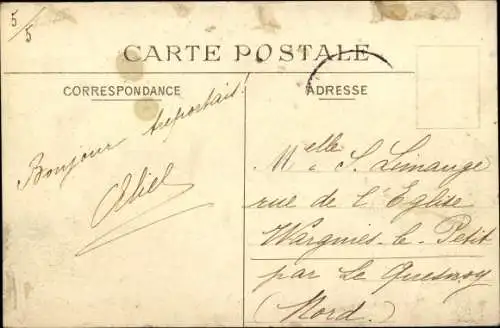 5/5
CARTE POSTALE
CORRESPONDANCE
ADRESSE
Bonjour tréportais!
Abiel
Melle S. Limange
rue de l'Eglise
Wargnies-le-Petit
par Le Quesnoy
(Nord)